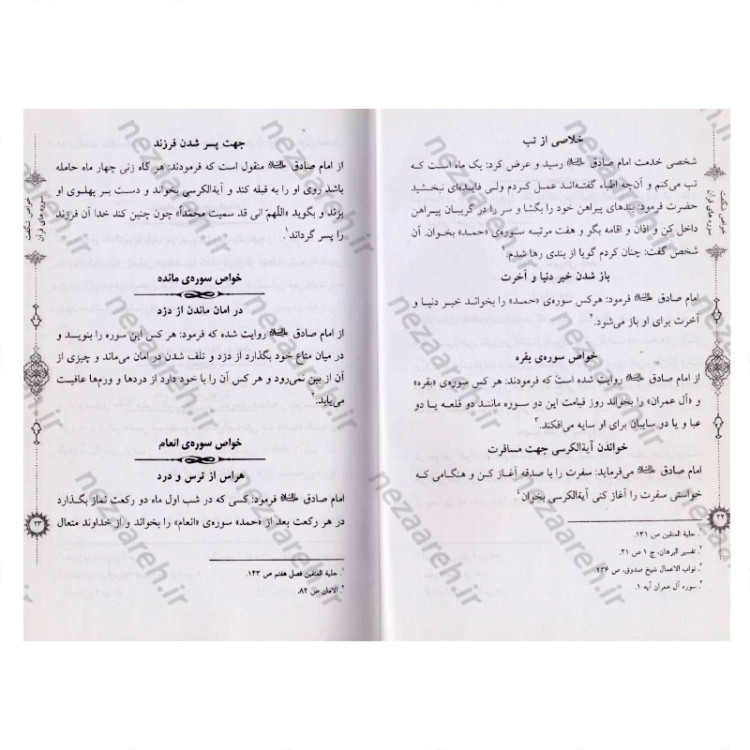 خلاصی از تب
شخصی خدمت امام صادق علیه‌السلام رسید و عرض کرد: یک ماه است که
تب می‌کنم و آن‌چه اطباء گفته‌اند عمل کردم ولی فایده‌ای نبخشید
حضرت فرمود: بندهای پیراهن خود را بگشا و سر را در گریبان پیراهن
داخل کن و اذان و اقامه بگو و هفت مرتبه سوره‌ی «حمد» بخوان. آن
شخص گفت: چنان کردم گویا از بندی رها شدم.¹
باز شدن خیر دنیا و آخرت
امام صادق علیه‌السلام فرمود: هرکس سوره‌ی «حمد» را بخواند خیر دنیا و
آخرت برای او باز می‌شود.²
خواص سوره‌ی بقره
از امام صادق علیه‌السلام روایت شده است که فرمودند: هر کس سوره‌ی «بقره»
و «آل عمران» را بخواند روز قیامت این دو سوره مانند دو قلعه یا دو
عبا و یا دو سایبان برای او سایه می‌افکند.³
خواندن آیةالکرسی جهت مسافرت
امام صادق علیه‌السلام می‌فرماید: سفرت را با صدقه آغاز کن و هنگامی که
خواستی سفرت را آغاز کنی آیةالکرسی بخوان⁴
۱. حلیة المتقین ص ۱۳۱.
۲. تفسیر البرهان، ج ۱ ص ۴۱.
۳. ثواب الاعمال شیخ صدوق، ص ۲۳۶
۴. سوره آل عمران آیه ۱.
خواص شگفت
سوره‌های قرآن
۲۲
جهت پسر شدن فرزند
از امام صادق علیه‌السلام منقول است که فرمودند: هر گاه زنی چهار ماه حامله
باشد روی او را به قبله کند و آیةالکرسی بخواند و دست بر پهلوی او
بزند و بگوید «اللّهمّ انی قد سمیت محمّداً» چون چنین کند خدا آن فرزند
را پسر گرداند.¹
خواص سوره‌ی مائده
در امان ماندن از دزد
از امام صادق علیه‌السلام روایت شده که فرمود: هر کس این سوره را بنویسد و
در میان متاع خود بگذارد از دزد و تلف شدن در امان می‌ماند و چیزی از
آن از بین نمی‌رود و هر کس آن را با خود دارد از دردها و ورم‌ها عافیت
می‌یابد.²
خواص سوره‌ی انعام
هراس از ترس و درد
امام صادق علیه‌السلام فرمود: کسی که در شب اول ماه دو رکعت نماز بگذارد
در هر رکعت بعد از «حمد» سوره‌ی «انعام» را بخواند و از خداوند متعال
۱. حلیة المتقین فصل هفتم ص ۱۴۳.
۲. الامان ص ۸۲.
خواص شگفت
سوره‌های قرآن
۲۳
nezaareh.ir